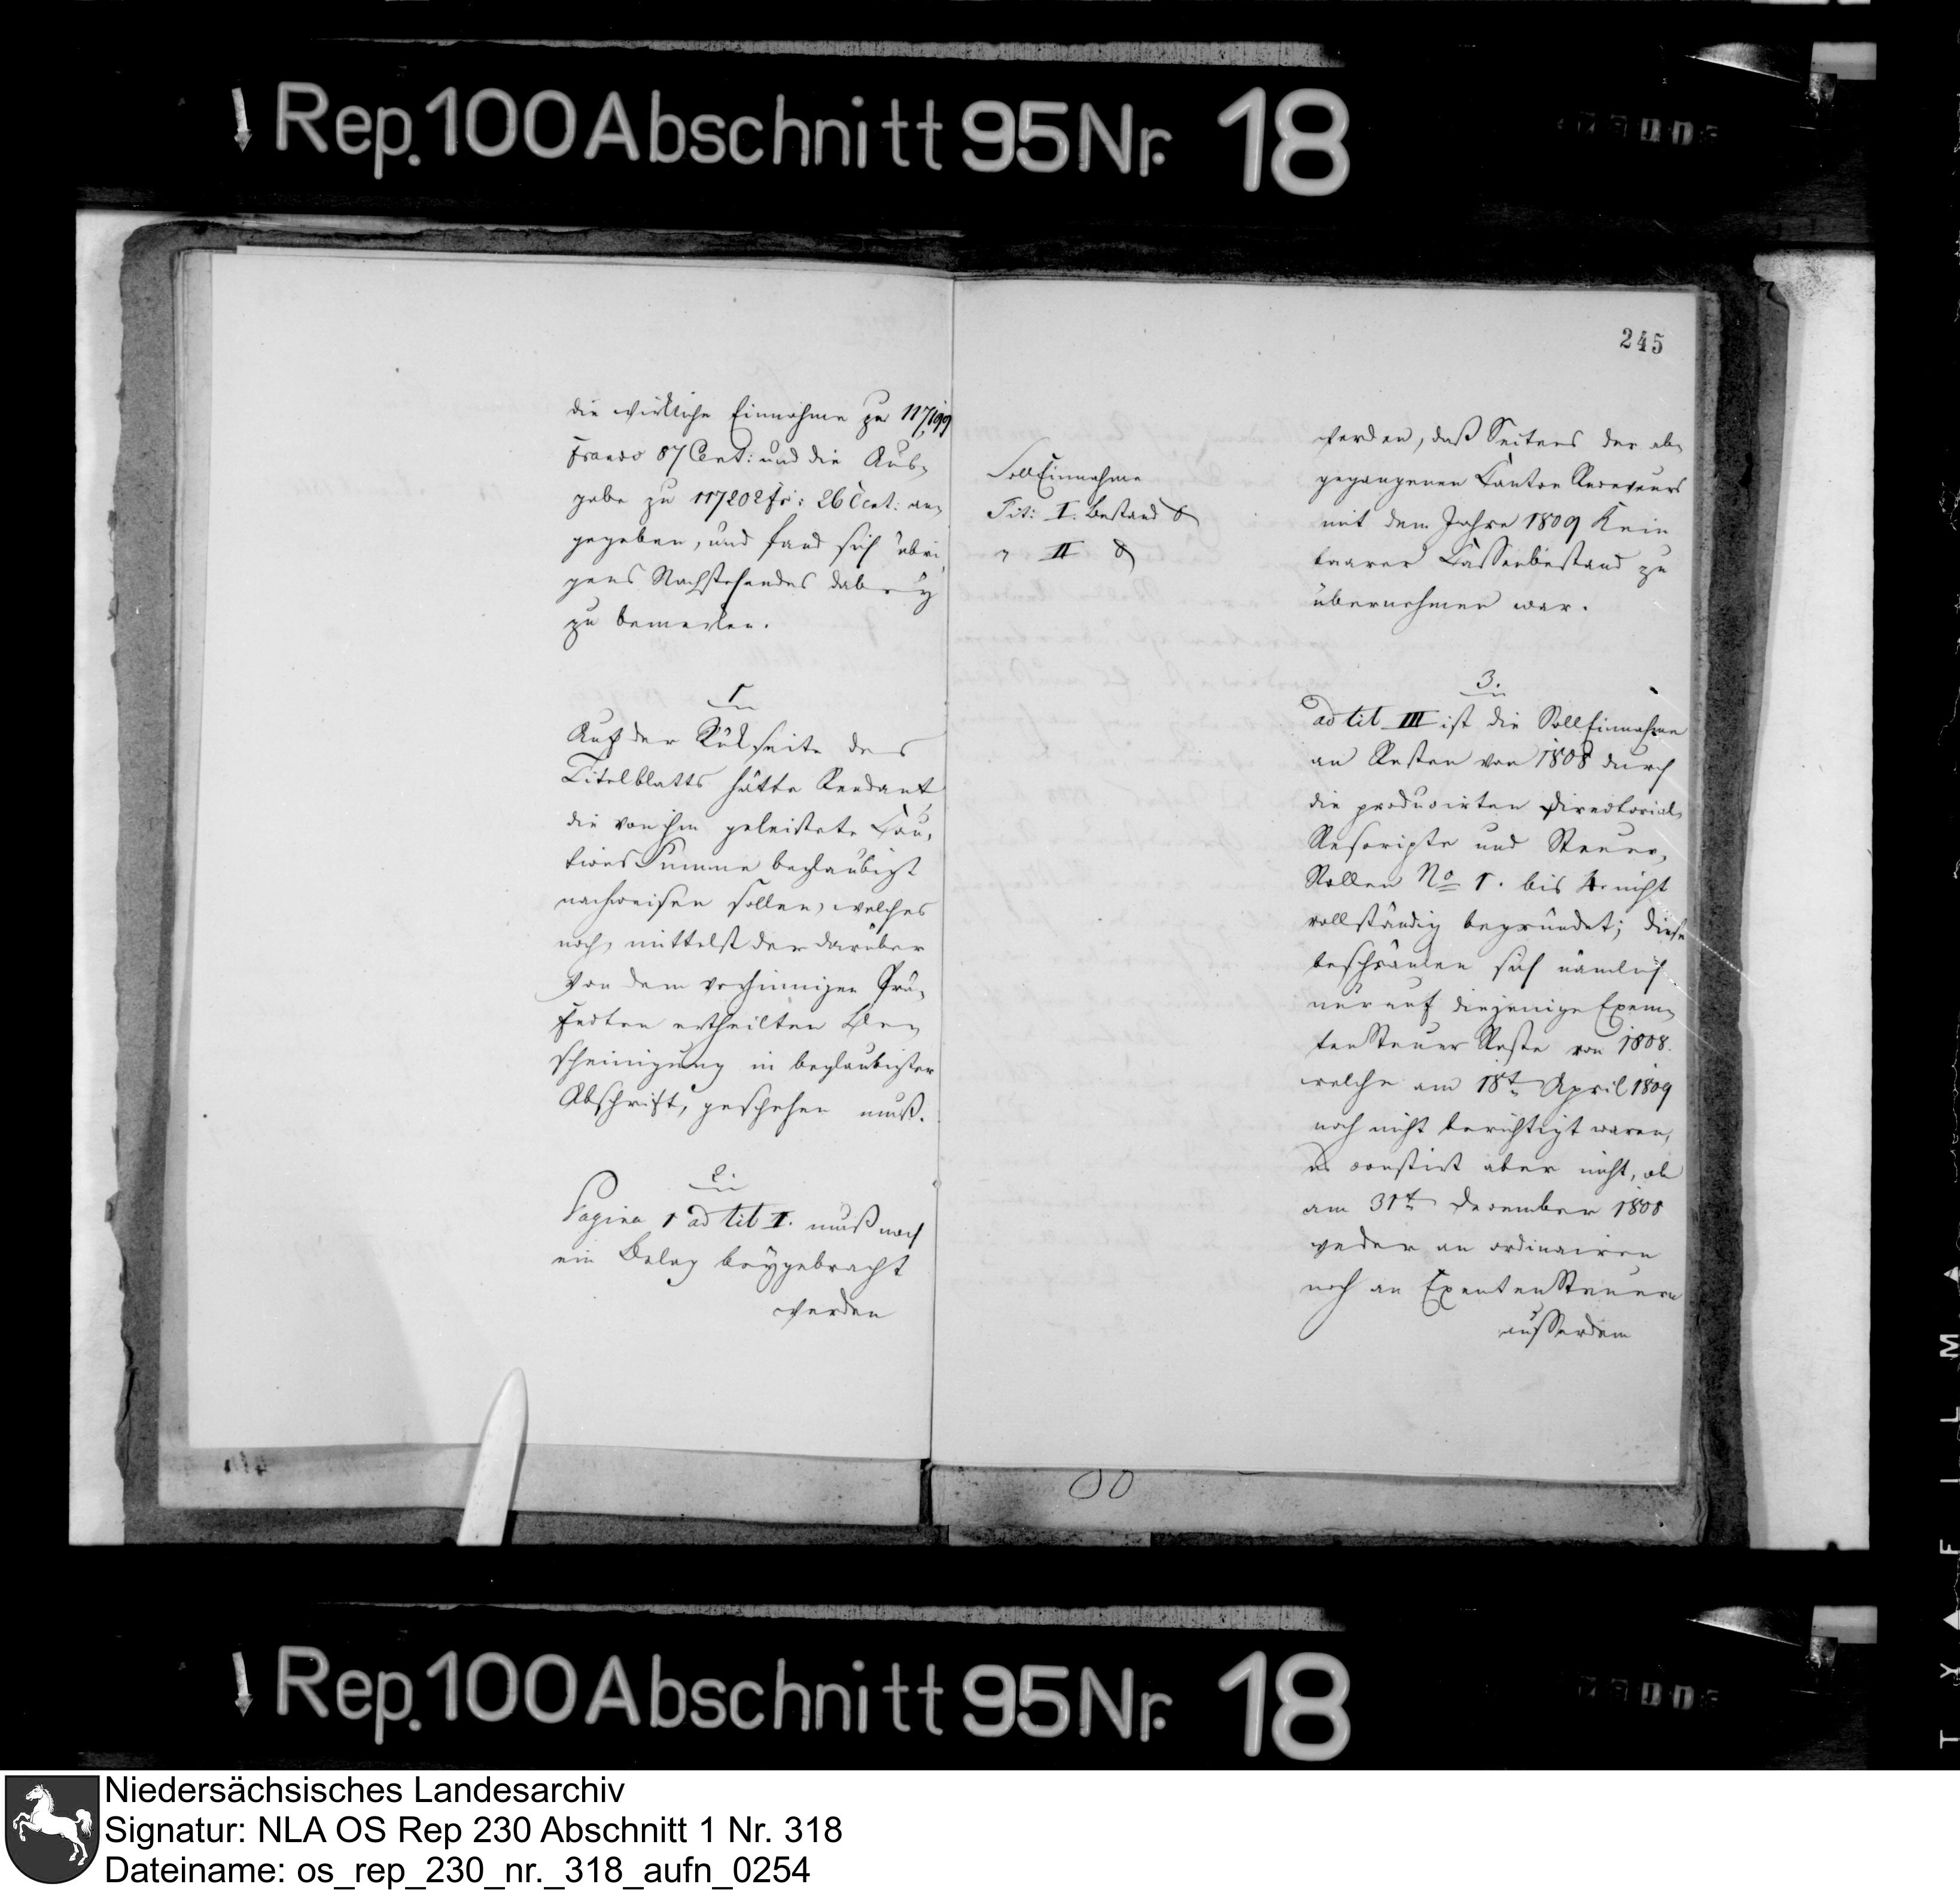 Rep. 100 Abschnitt 95 Nr. 18
die wirkliche Einnahme zu 117,199
Francs 87 Cent: und die Aus-
gabe zu 117202 fr: 26 Cent: an-
gegeben, und fand sich übri-
gens Nachstehendes dabey
zu bemerken.
1.
Auf der Rükseite des
Titelblatts hätte Rendant
die von ihm geleistete Cau-
tions Summe beglaubigt
nachweisen sollen, welches
noch, mittelst der darüber
von dem vorhinnigen Prä-
fecten ertheilten Be-
scheinigung in beglaubigter
Abschrift, geschehen muß.
2.
Pagina 1 ad tit I. muß noch
ein Belag beygebracht
werden
245
Soll Einnahme
Tit: I. Bestand
" II
werden, daß Seitens des ab-
gegangenen Canton Receveurs
mit dem Jahre 1809 Kein
baarer Cassenbestand zu
übernehmen war.
3.
ad tit III ist die Soll Einnahme
an Resten von 1808 durch
die producirten Directorial-
Rescripte und Steuer-
Rollen No 1. bis 4. nicht
vollständig begründet; diese
beschränken sich nämlich
nur auf diejenige Exem-
ten Steuer Reste von 1808.
welche am 18t April 1809
noch nicht berichtigt waren,
es constirt aber nicht, ob
am 31t December 1808
weder an ordinairen
noch an Exemten Steuern
ausserdem
Rep. 100 Abschnitt 95 Nr. 18
Niedersächsisches Landesarchiv
Signatur: NLA OS Rep 230 Abschnitt 1 Nr. 318
Dateiname: os_rep_230_nr._318_aufn_0254